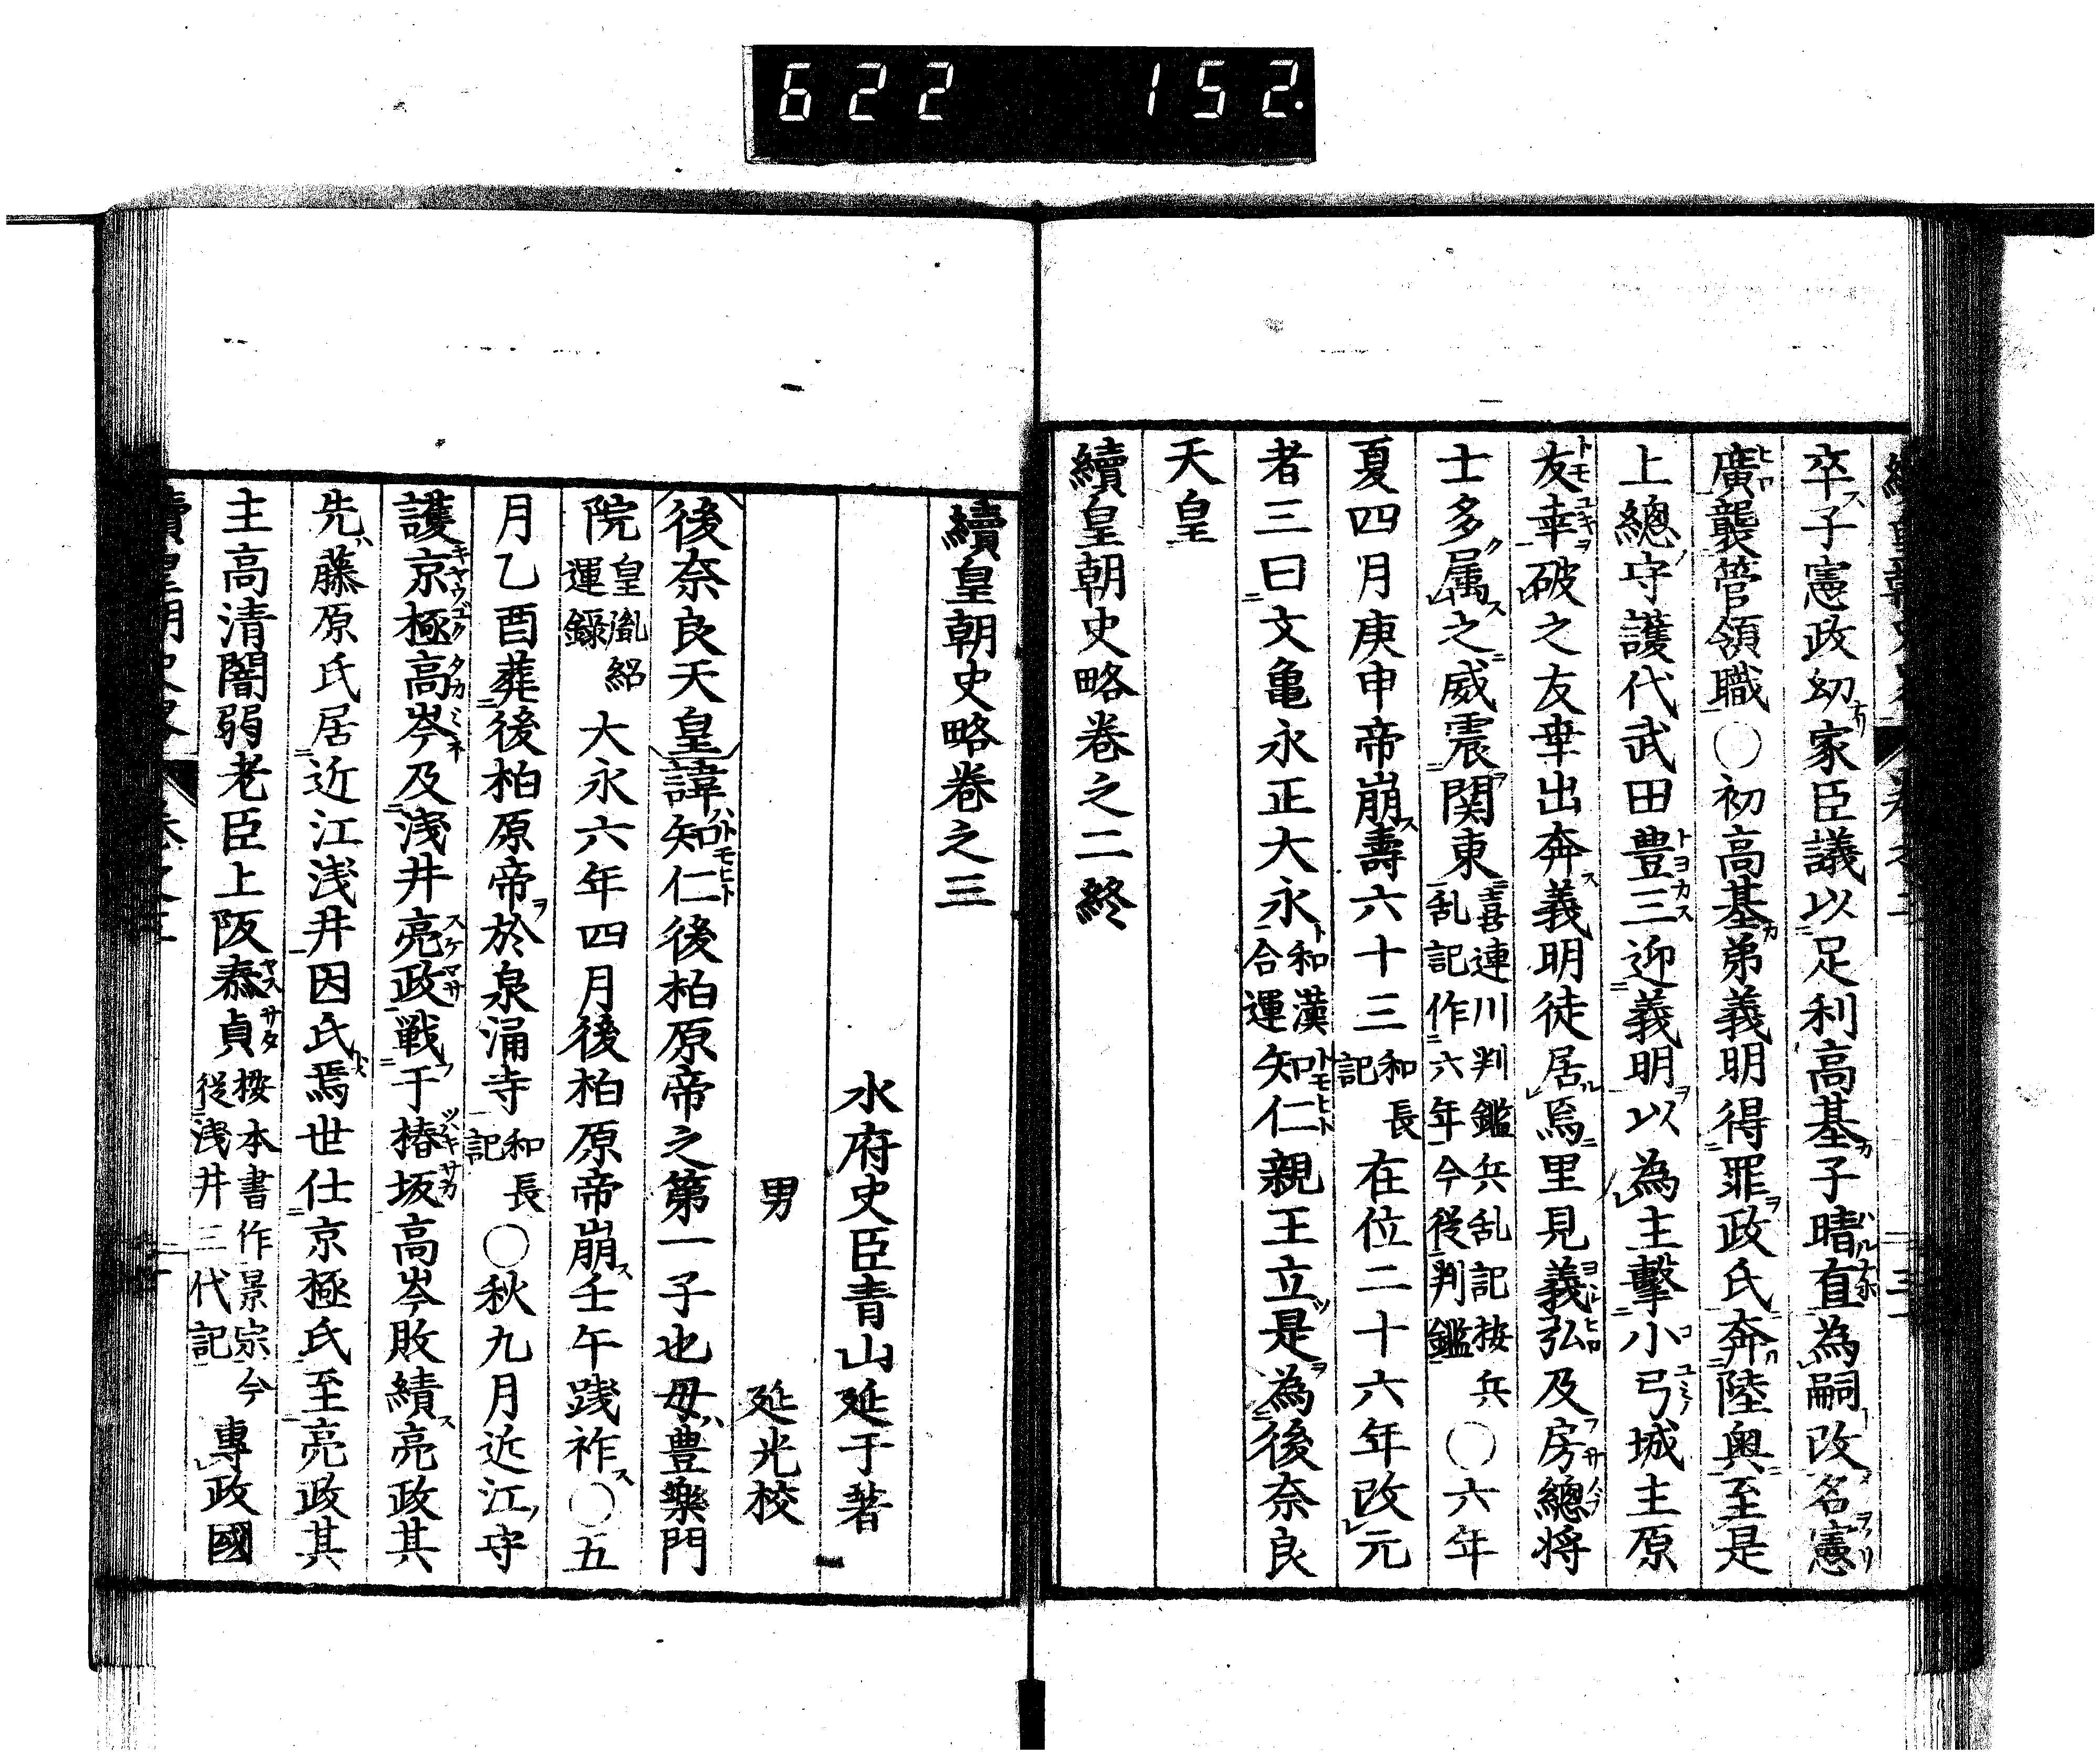 622 152.
卒子憲政幼家臣議以足利高基子晴直為嗣改名憲
廣襲管領職○初高基弟義明得罪政氏奔陸奥至是
上總守護代武田豊三迎義明以為主擊小弓城主原
友幸破之友幸出奔義明徒居焉里見義弘及房總将
士多属之威震関東喜連川判鑑兵乱記按兵乱記作六年今従判鑑○六年
夏四月庚申帝崩壽六十三和長記在位二十六年改元
者三曰文亀永正大永和漢合運知仁親王立是為後奈良
天皇
續皇朝史略巻之二終
續皇朝史略巻之三
水府史臣青山延于著
男 延光校
後奈良天皇諱知仁後柏原帝之第一子也母豊樂門
院皇胤紹運錄大永六年四月後柏原帝崩壬午践祚○五
月乙酉葬後柏原帝於泉涌寺和長記○秋九月近江守
護京極高岑及浅井亮政戦于椿坂高岑敗績亮政其
先藤原氏居近江浅井因氏焉世仕京極氏至亮政其
主高清闇弱老臣上阪泰貞按本書作景宗今従浅井三代記專政國